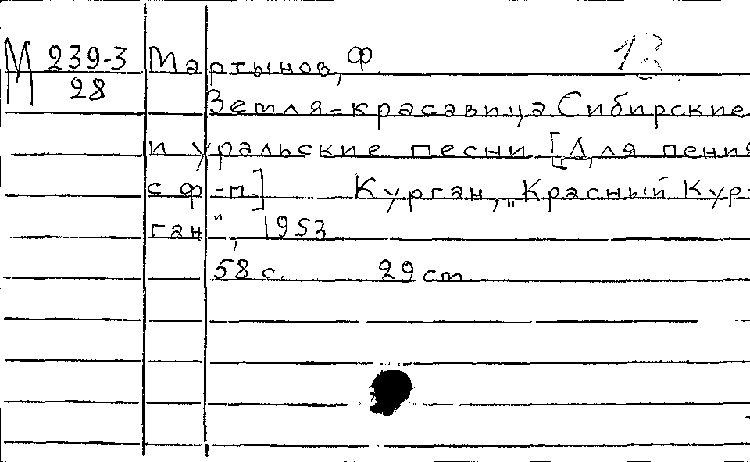 М 239-3 Мартынов, Ф 13
28
Земля-красавица Сибирские
и уральские песни [Для пения
с ф-п] Курган, „Красный Кур-
ган“, 1953
58 с. 29 cm